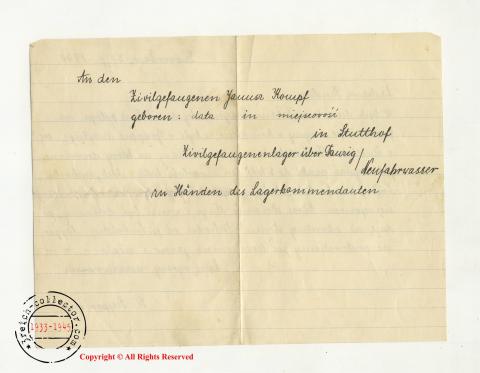 An den
Zivilgefangenen Janusz Kompf
geboren: data in miejscowość
in Stutthof
Zivilgefangenenlager über Danzig/
Neufahrwasser
zu Händen des Lagerkommendanten
3reich-collector.com
1933-1945
Copyright © All Rights Reserved